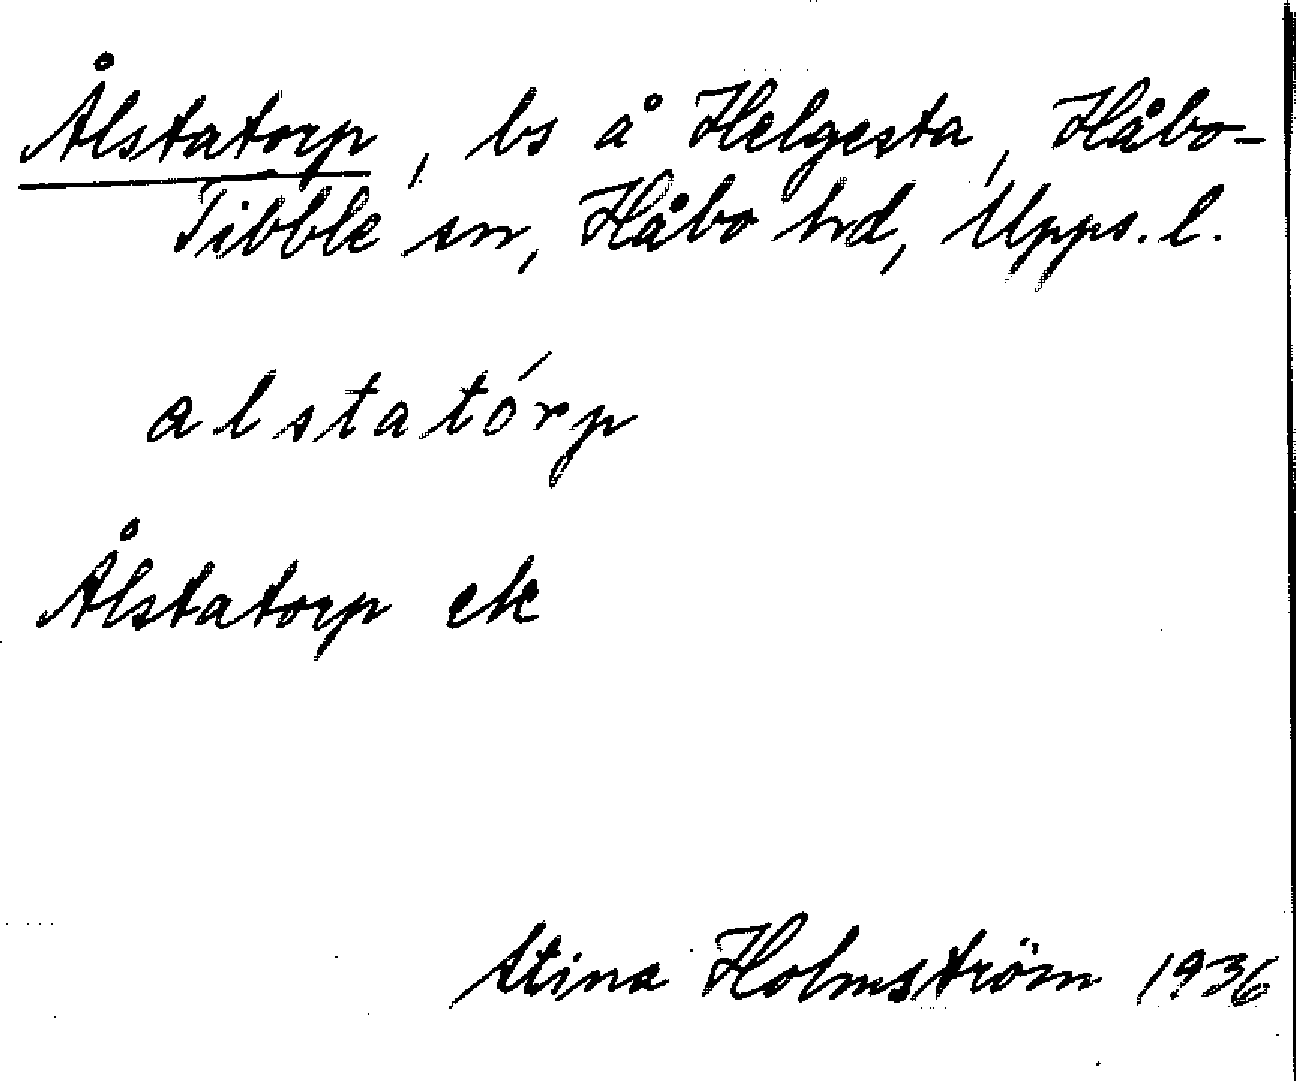 Ålstatorp, bs å Helgesta, Håbo-
Tibble sn, Håbo hd, Upps. l.
alstatórp
Ålstatorp ek
Stina Holmström 1936